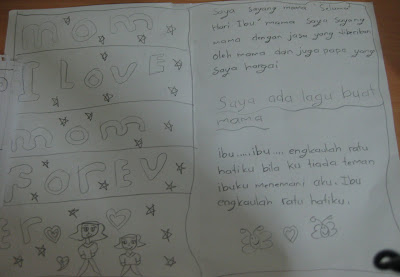 mom
I LOVE
mom
FOREV
er
Saya sayang mama "Selamat
Hari Ibu" mama saya sayang
mama dengan jasa yang diberikan
oleh mama dan juga papa yang
saya hargai
Saya ada lagu buat
mama
ibu.....ibu.... engkaulah ratu
hatiku bila ku tiada teman
ibuku menemani aku. Ibu
engkaulah ratu hatiku.